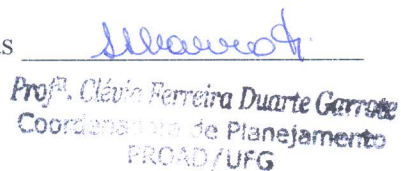 as
Profª. Clévia Ferreira Duarte Garrote
Coordenadora de Planejamento
PROAD/UFG